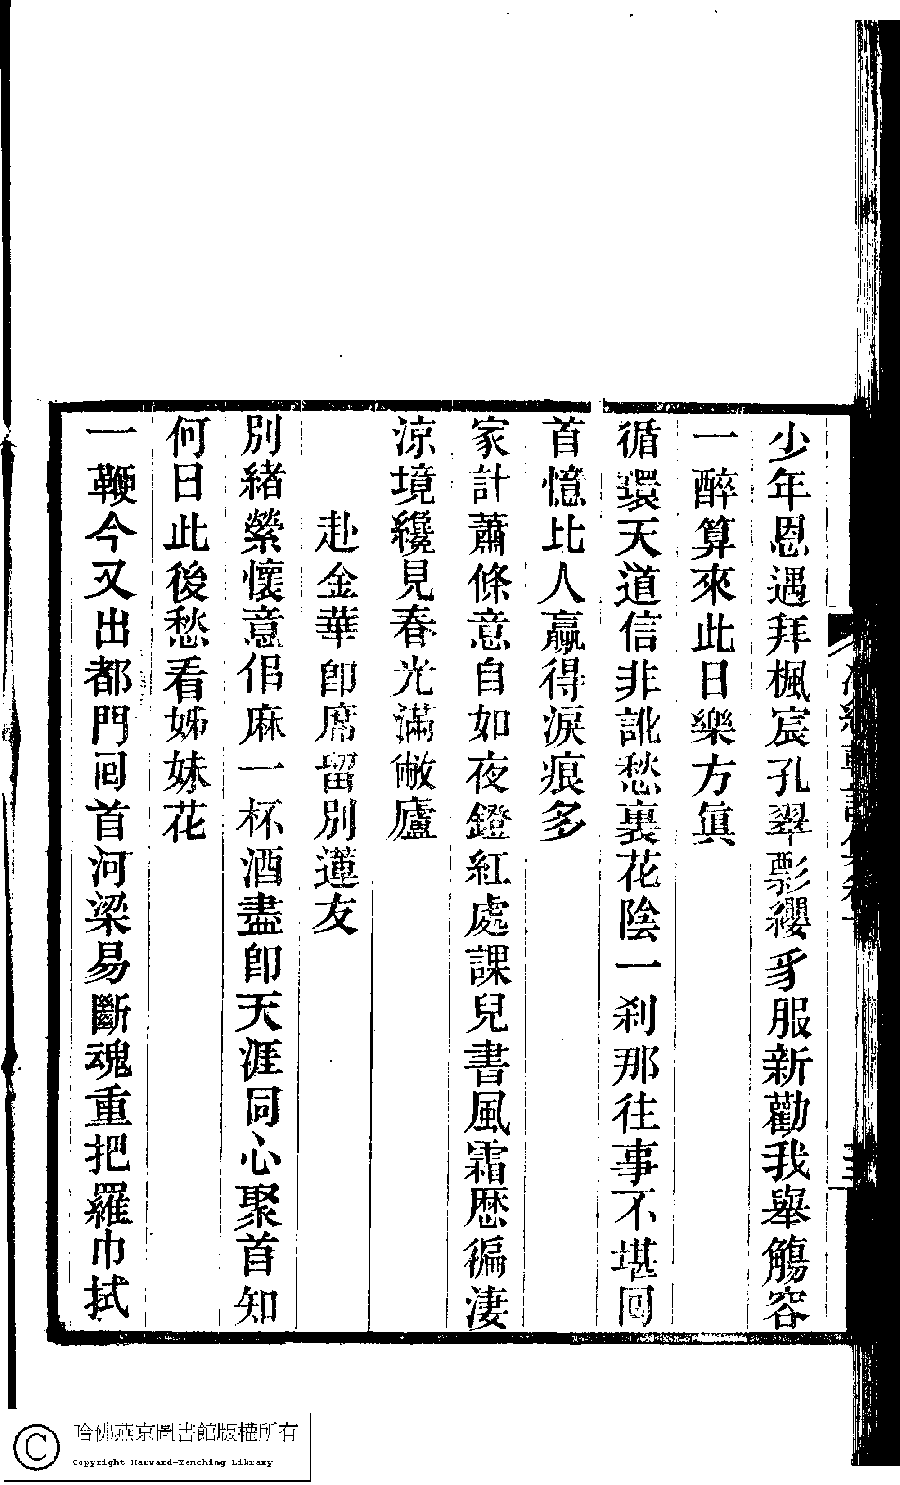 少年恩遇拜楓宸孔翠影纓豸服新勸我舉觴容
一醉算來此日樂方眞
循環天道信非訛愁裏花陰一刹那往事不堪回
首憶比人贏得淚痕多
家計蕭條意自如夜鐙紅處課兒書風霜歷徧淒
涼境纔見春光滿敝廬
赴金華卽席留別蓮友
別緒縈懷意侶麻一杯酒盡卽天涯同心聚首知
何日此後愁看姊妹花
一鞭今又出都門回首河梁易斷魂重把羅巾拭
哈佛燕京圖書館版權所有
Copyright Harvard-Yenching Library